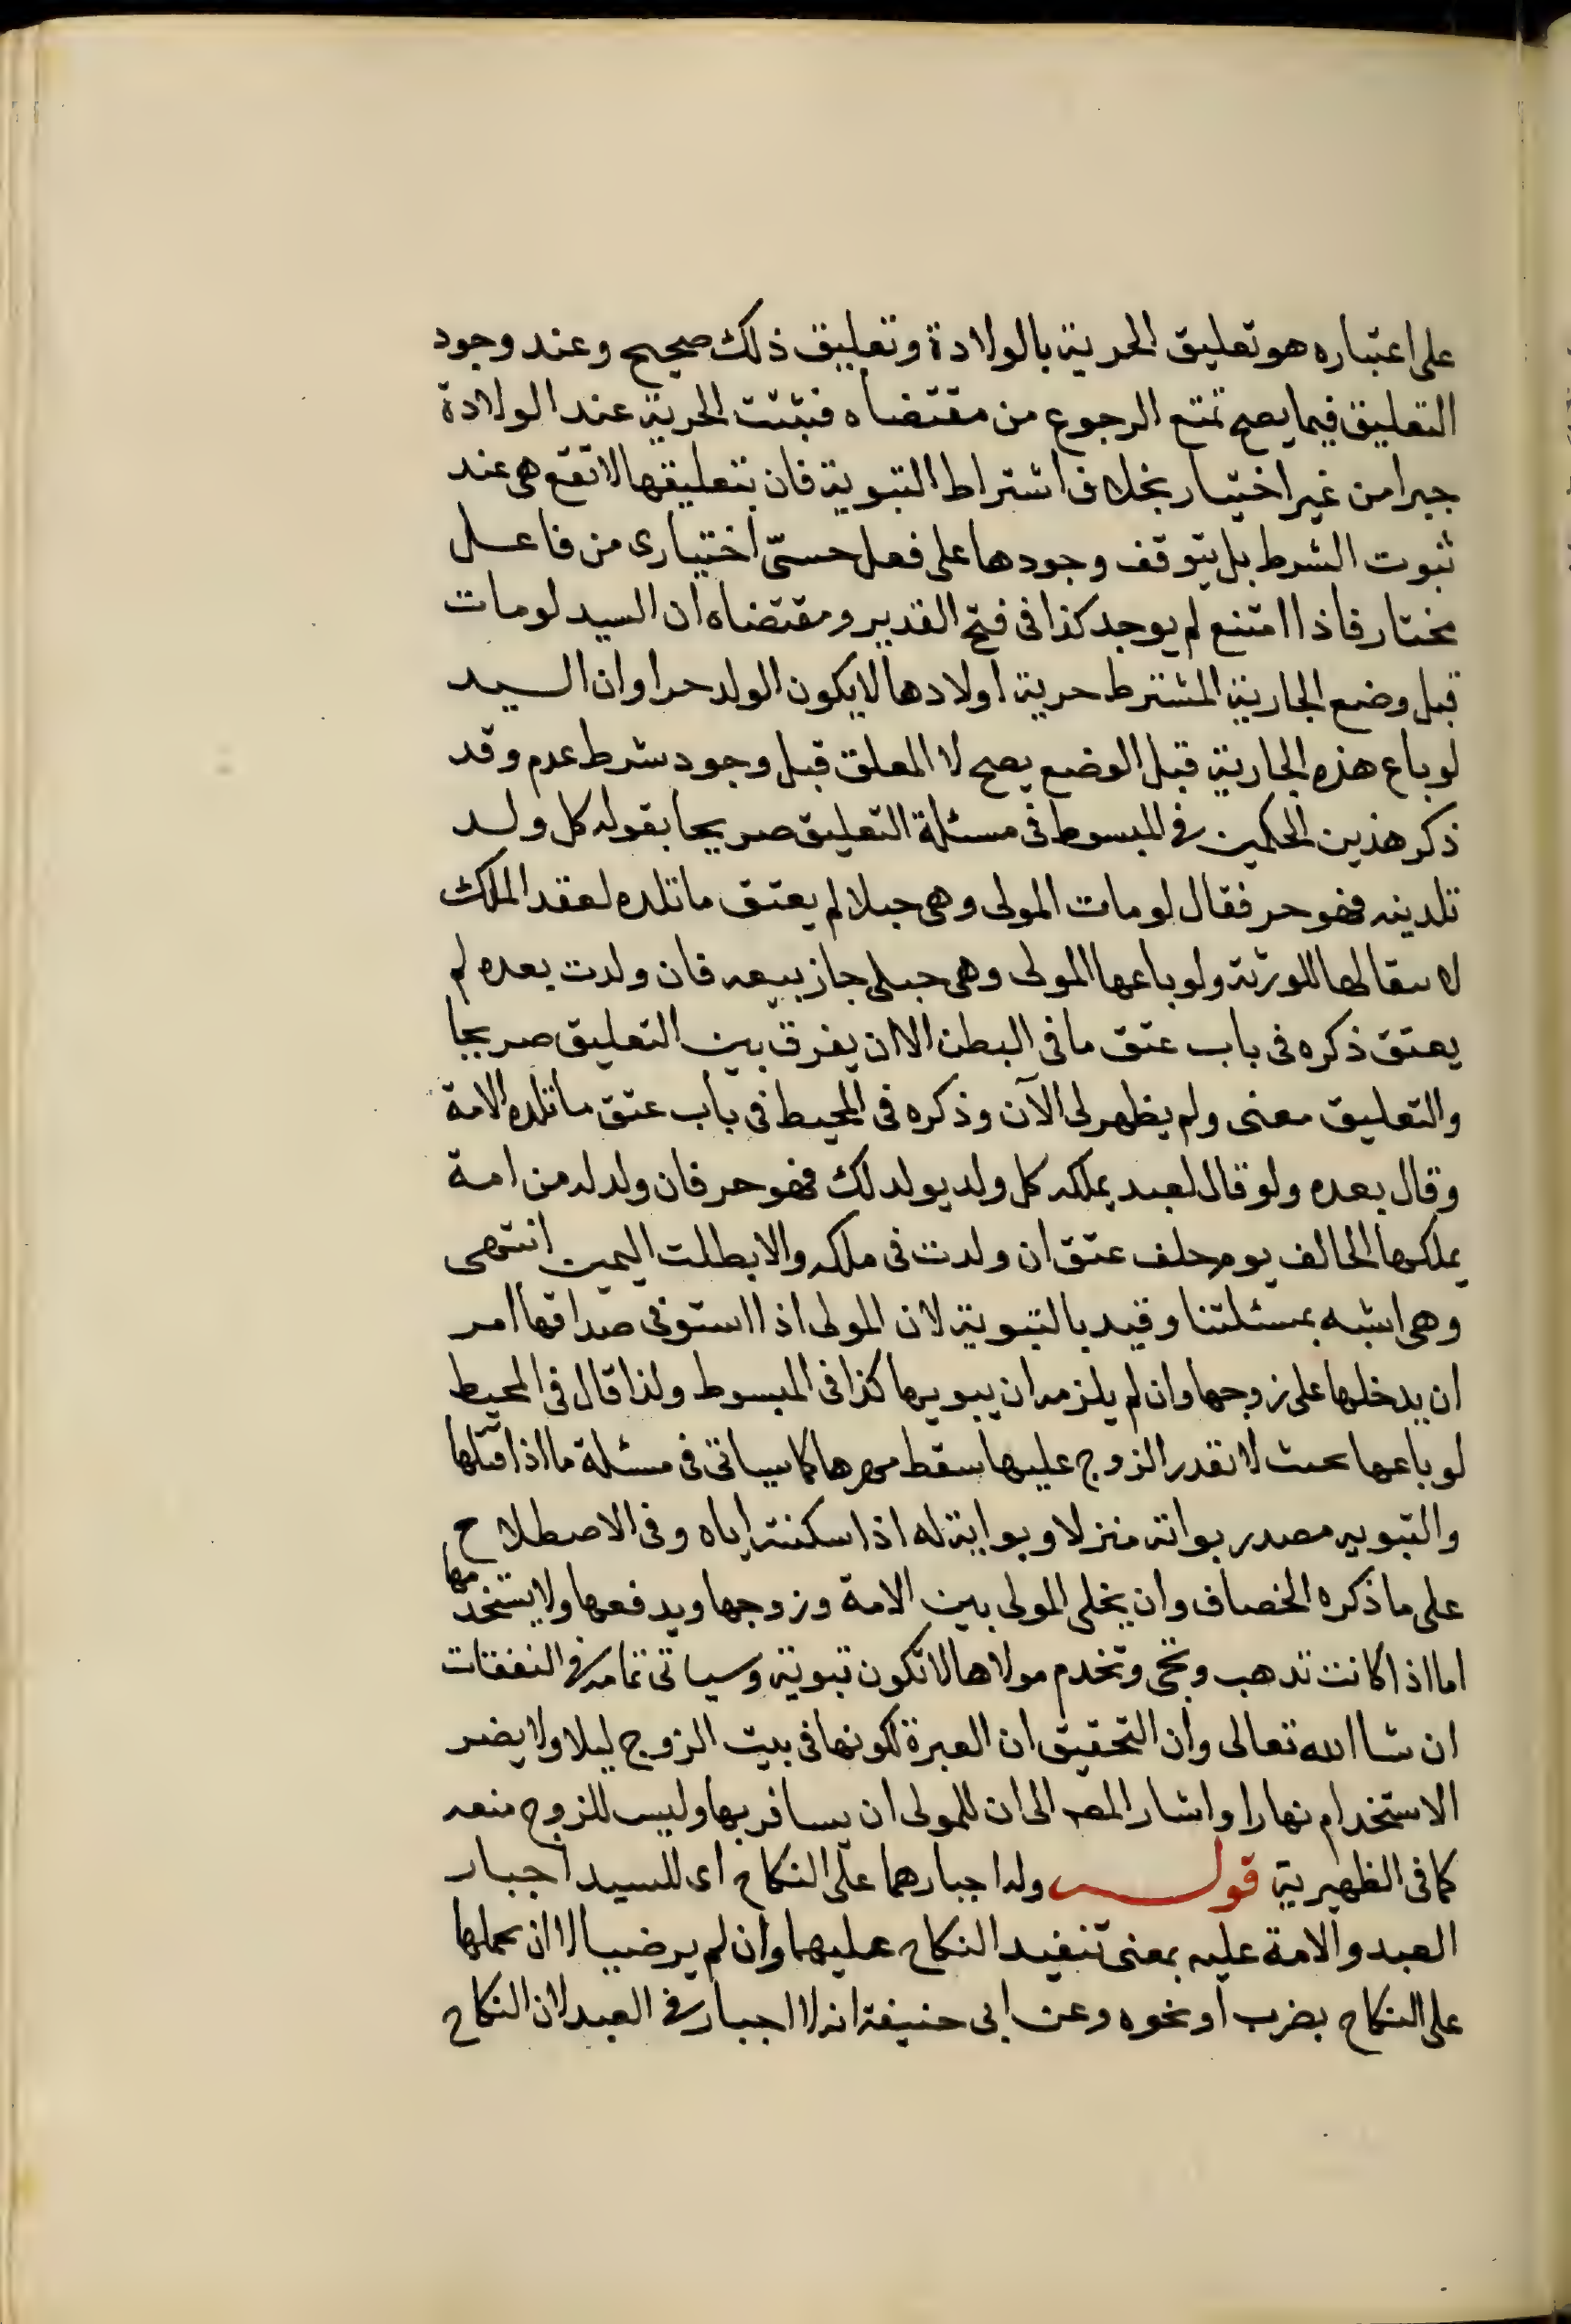 على اعتباره هو تعليق الحرية بالولادة وتعليق ذلك صحيح وعند وجود
التعليق فيما يصح تمتنع الرجوع من مقتضاه فتثبت الحرية عند الولادة
جبرا من غير اختيار بخلاف اشتراط التبوية فان بتعليقها لا تقع هي عند
ثبوت الشرط بل يتوقف وجودها على فعل حسيّ اختيارى من فاعل
مختار فاذا امتنع لم يوجد كذا فى فتح القدير ومقتضاه ان السيد لو مات
قبل وضع الجارية المشترط حرية اولادها لا يكون الولد حرا وان السيد
لو باع هذه الجارية قبل الوضع يصح لا المعلق قبل وجود شرط عدم وقد
ذكر هذين الحكمين فى المبسوط فى مسئلة التعليق صريحا بقوله كل ولد
تلدينه فهو حر فقال لو مات المولى وهى حبلا لم يعتق ما تلده لعقد الملك
لانتقالها للورثة ولو باعها المولى وهى حبلى جاز بيعه فان ولدت بعده لم
يعتق ذكره فى باب عتق ما فى البطن الا ان يفرق بين التعليق صريحا
والتعليق معنى ولم يظهر لى الآن وذكره فى المحيط فى باب عتق ما تلده الامة
وقال بعده ولو قال لعبد يملكه كل ولد يولد لك فهو حر فان ولد له من امة
يملكها الحالف يوم حلف عتق ان ولدت فى ملكه والا بطلت اليمين انتهى
وهى اشبه بمسئلتنا وقيد بالتبوية لان المولى اذا استوفى صداقها امر
ان يدخلها على زوجها وان لم يلزمه ان يبويها كذا فى المبسوط ولذا قال فى المحيط
لو باعها بحيث لا تقدر الزوج عليها سقط مهرها كما سياتى فى مسئلة ما اذا قتلها
والتبويه مصدر بواته منزلا وبوايته له اذا سكنته اياه وفى الاصطلاح
على ما ذكره الخصاف وان يخلى المولى بين الامة وزوجها ويدفعها ولا يستخدمها
اما اذا كانت تذهب وتجى وتخدم مولاها لا تكون تبوية وسياتى تمامه فى النفقات
ان شا الله تعالى وان التحقيق ان العبرة لكونها فى بيت الزوج ليلا ولا يضر
الاستخدام نهارا واشار المصـ الى ان للمولى ان يسافر بها وليس للزوج منعه
كما فى الظهيرية قولـه وله اجبارهما على النكاح اى للسيد اجبار
العبد والامة عليه بمعنى تنفيد النكاح عليهما وان لم يرضيا لا ان يحملها
على النكاح بضرب او نحوه وعن ابى حنيفة انه لا اجبار فى العبد لان النكاح